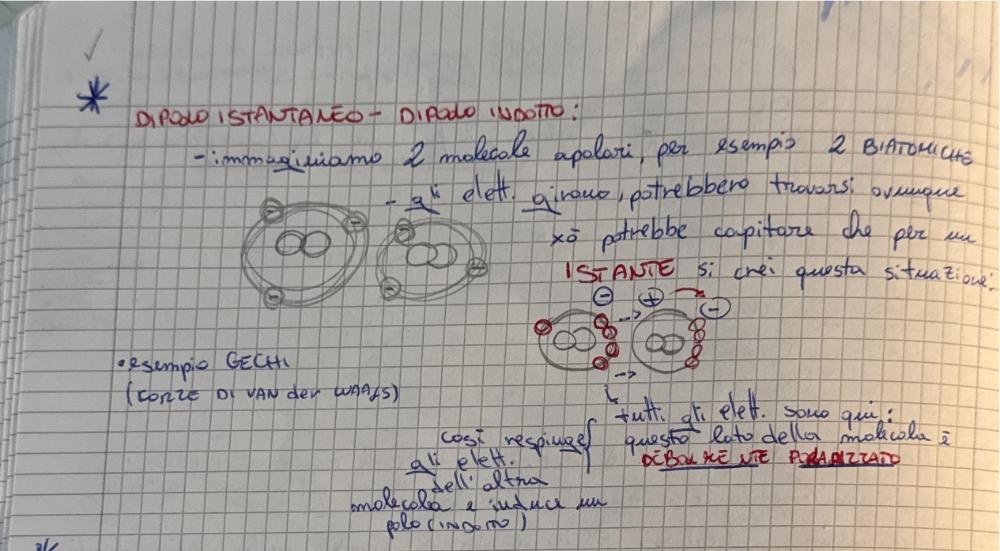 DIPOLO ISTANTANEO - DIPOLO INDOTTO:
- immaginiamo 2 molecole apolari, per esempio 2 BIATOMICHE
- gli elett. girano, potrebbero trovarsi ovunque
xò potrebbe capitare che per un
ISTANTE si crei questa situazione:
- + -
• esempio GECHI
(FORZE DI VAN der WAALS)
tutti gli elett. sono qui:
questo lato della molecola è
DEBOLMENTE POLARIZZATO
così respinge
gli elett.
dell'altra
molecola e induce un
polo (INDOTTO)